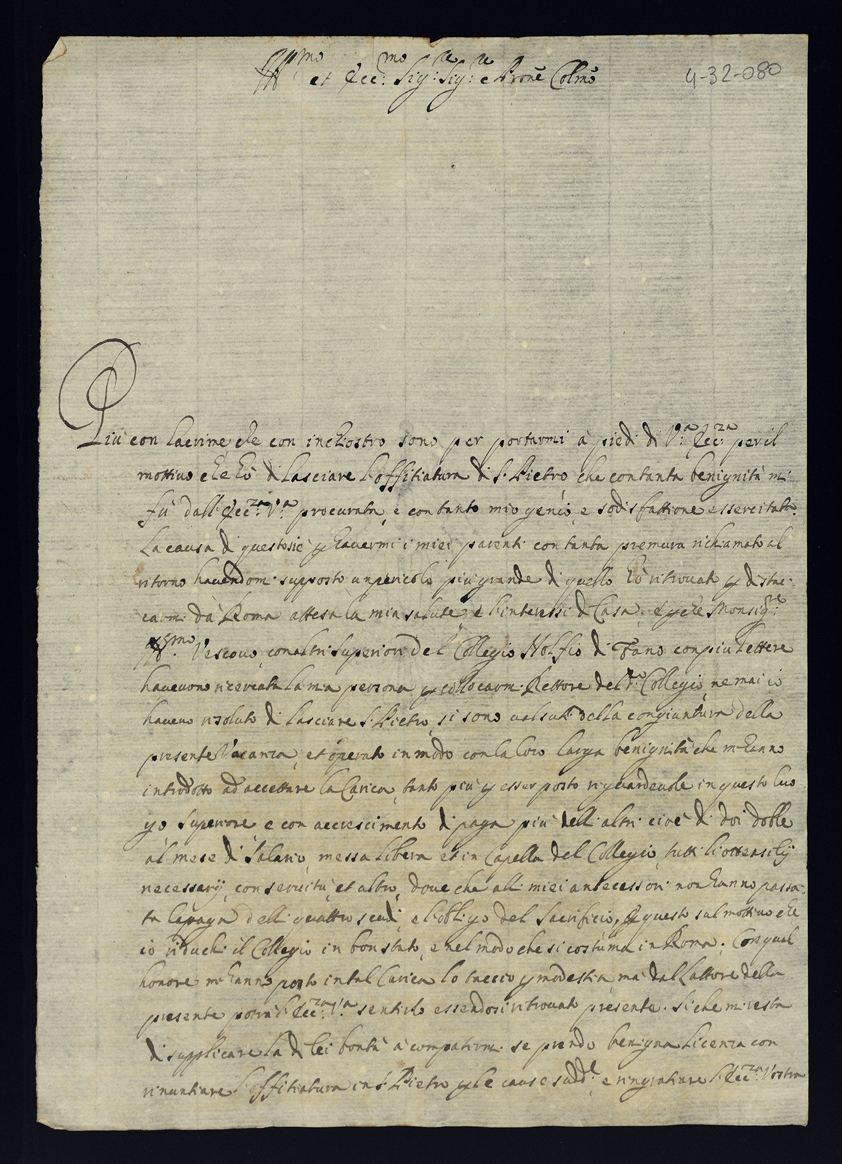 Ill.mo et Ecc.mo Sig.re Sig.re e Prone Colmo
4-32-080
Più con lacrime che con inchiostro sono per portarmi à piedi di V.a Ecc.za per il
mottiuo che hò di lasciare l'offitiatura di S. Pietro che con tanta benignità mi
fù dall'Ecc.za V.a procurata, e con tanto mio genio, e sodisfattione essercitata.
La causa di questo si è p hauermi i miei parenti con tanta premura richiamato al
ritorno hauendomi supposto un pericolo più grande di quello hò ritrouato p distac-
carmi dà Roma attesa la mia salute, e l'interessi di Casa. E p che Monsig.re
Ill.mo Vescouo, con altri Superiori del Collegio Nolfio di Fano con più lettere
haueuono ricercata la mia persona p collocarmi Rettore del d.o Collegio, ne mai io
haueuo risoluto di lasciare S. Pietro, si sono ualsuti della congiuntura della
presente Vacanza, et operato in modo con la loro larga benignità che m'hanno
introdotto ad accettare la Carica, tanto più p esser posto riguardeuole in questo luo-
go Superiore e con accrescimento di paga più dell'altri cioè di doi doble
al mese di Salario, messa libera et in Capella del Collegio, tutti li ottensilij
necessarij, con seruitù, et altro, doue che alli miei antecessori non hanno passa-
ta la paga delli quattro scudi, e l'obligo del Sacrificio, e questo sul mottiuo che
io riduchi il Collegio in bon stato, e nel modo che si costuma in Roma. Con qual
honore m'hanno posto in tal Carica lo taccio p modestia, ma dal Lattore della
presente potrà l'Ecc.za V.a sentirlo essendosi ritrouato presente. Si che mi resta
di supplicare la di lei bontà à compatirmi se prendo benigna licenza con
rinuntiare l'offitiatura in S. Pietro p le cause sudd.e, e ringratiare l'Ecc.za Vostra